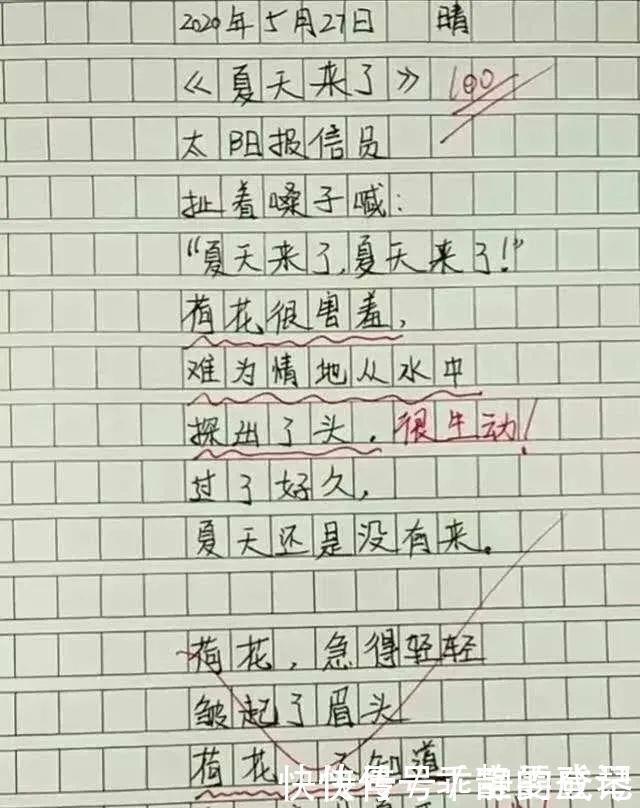 2020年5月27日 晴
《夏天来了》 100
太阳报信员
扯着嗓子喊:
“夏天来了,夏天来了!”
荷花很害羞,
难为情地从水中
探出了头。很生动!
过了好久,
夏天还是没有来。
荷花,急得轻轻
皱起了眉头
荷花 不知道